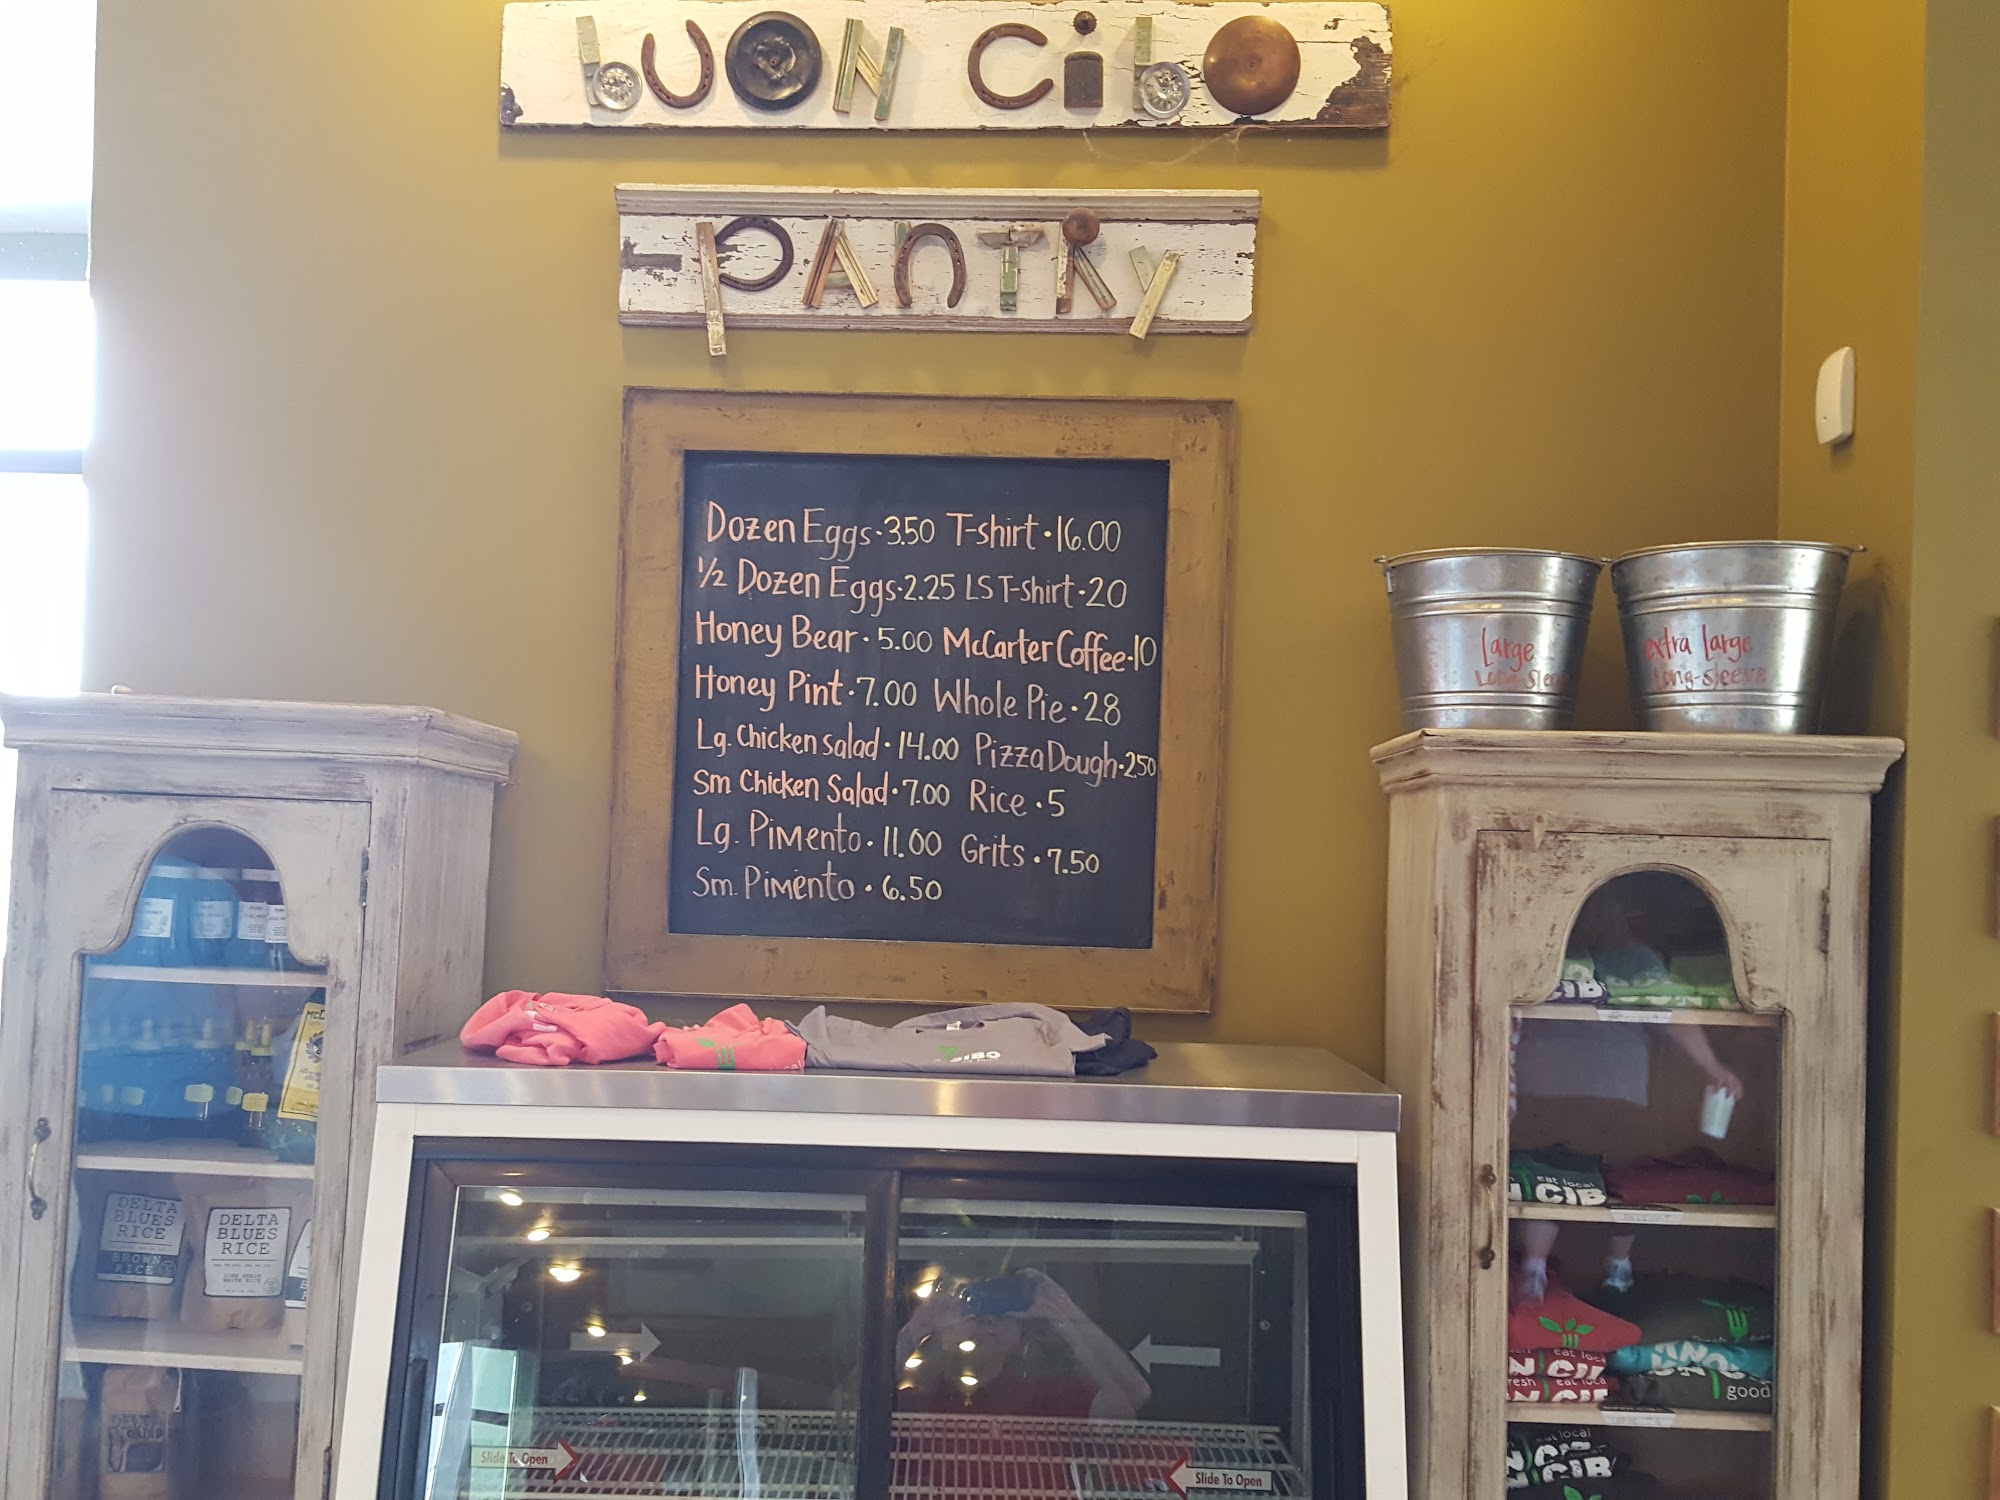 buon cibo
PANTRY
Dozen Eggs · 3.50 T-shirt · 16.00
1/2 Dozen Eggs · 2.25 LS T-shirt · 20
Honey Bear · 5.00 McCarter Coffee · 10
Honey Pint · 7.00 Whole Pie · 28
Lg. Chicken Salad · 14.00 Pizza Dough · 2.50
Sm Chicken Salad · 7.00 Rice · 5
Lg. Pimento · 11.00 Grits · 7.50
Sm. Pimento · 6.50
Large
Long-Sleeve
extra large
Long-sleeve
DELTA
BLUES
RICE
BROWN
RICE
DELTA
BLUES
RICE
LONG GRAIN
WHITE RICE
CIBO
CIB
eat local
N CIB
eat local
N CI
fresh eat local
good
eat local
N CIB
Slide To Open
Slide To Open